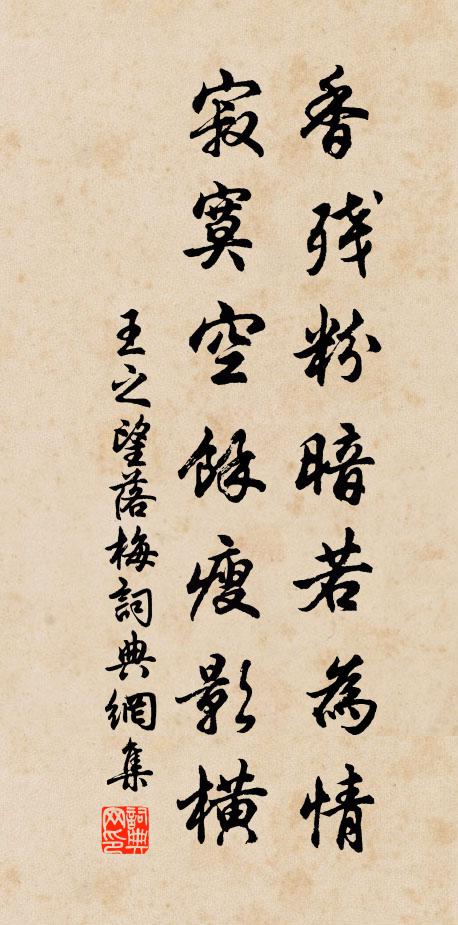 香殘粉暗若為情
寂寞空餘瘦影橫
王之望落梅詞典網集
詞典网印